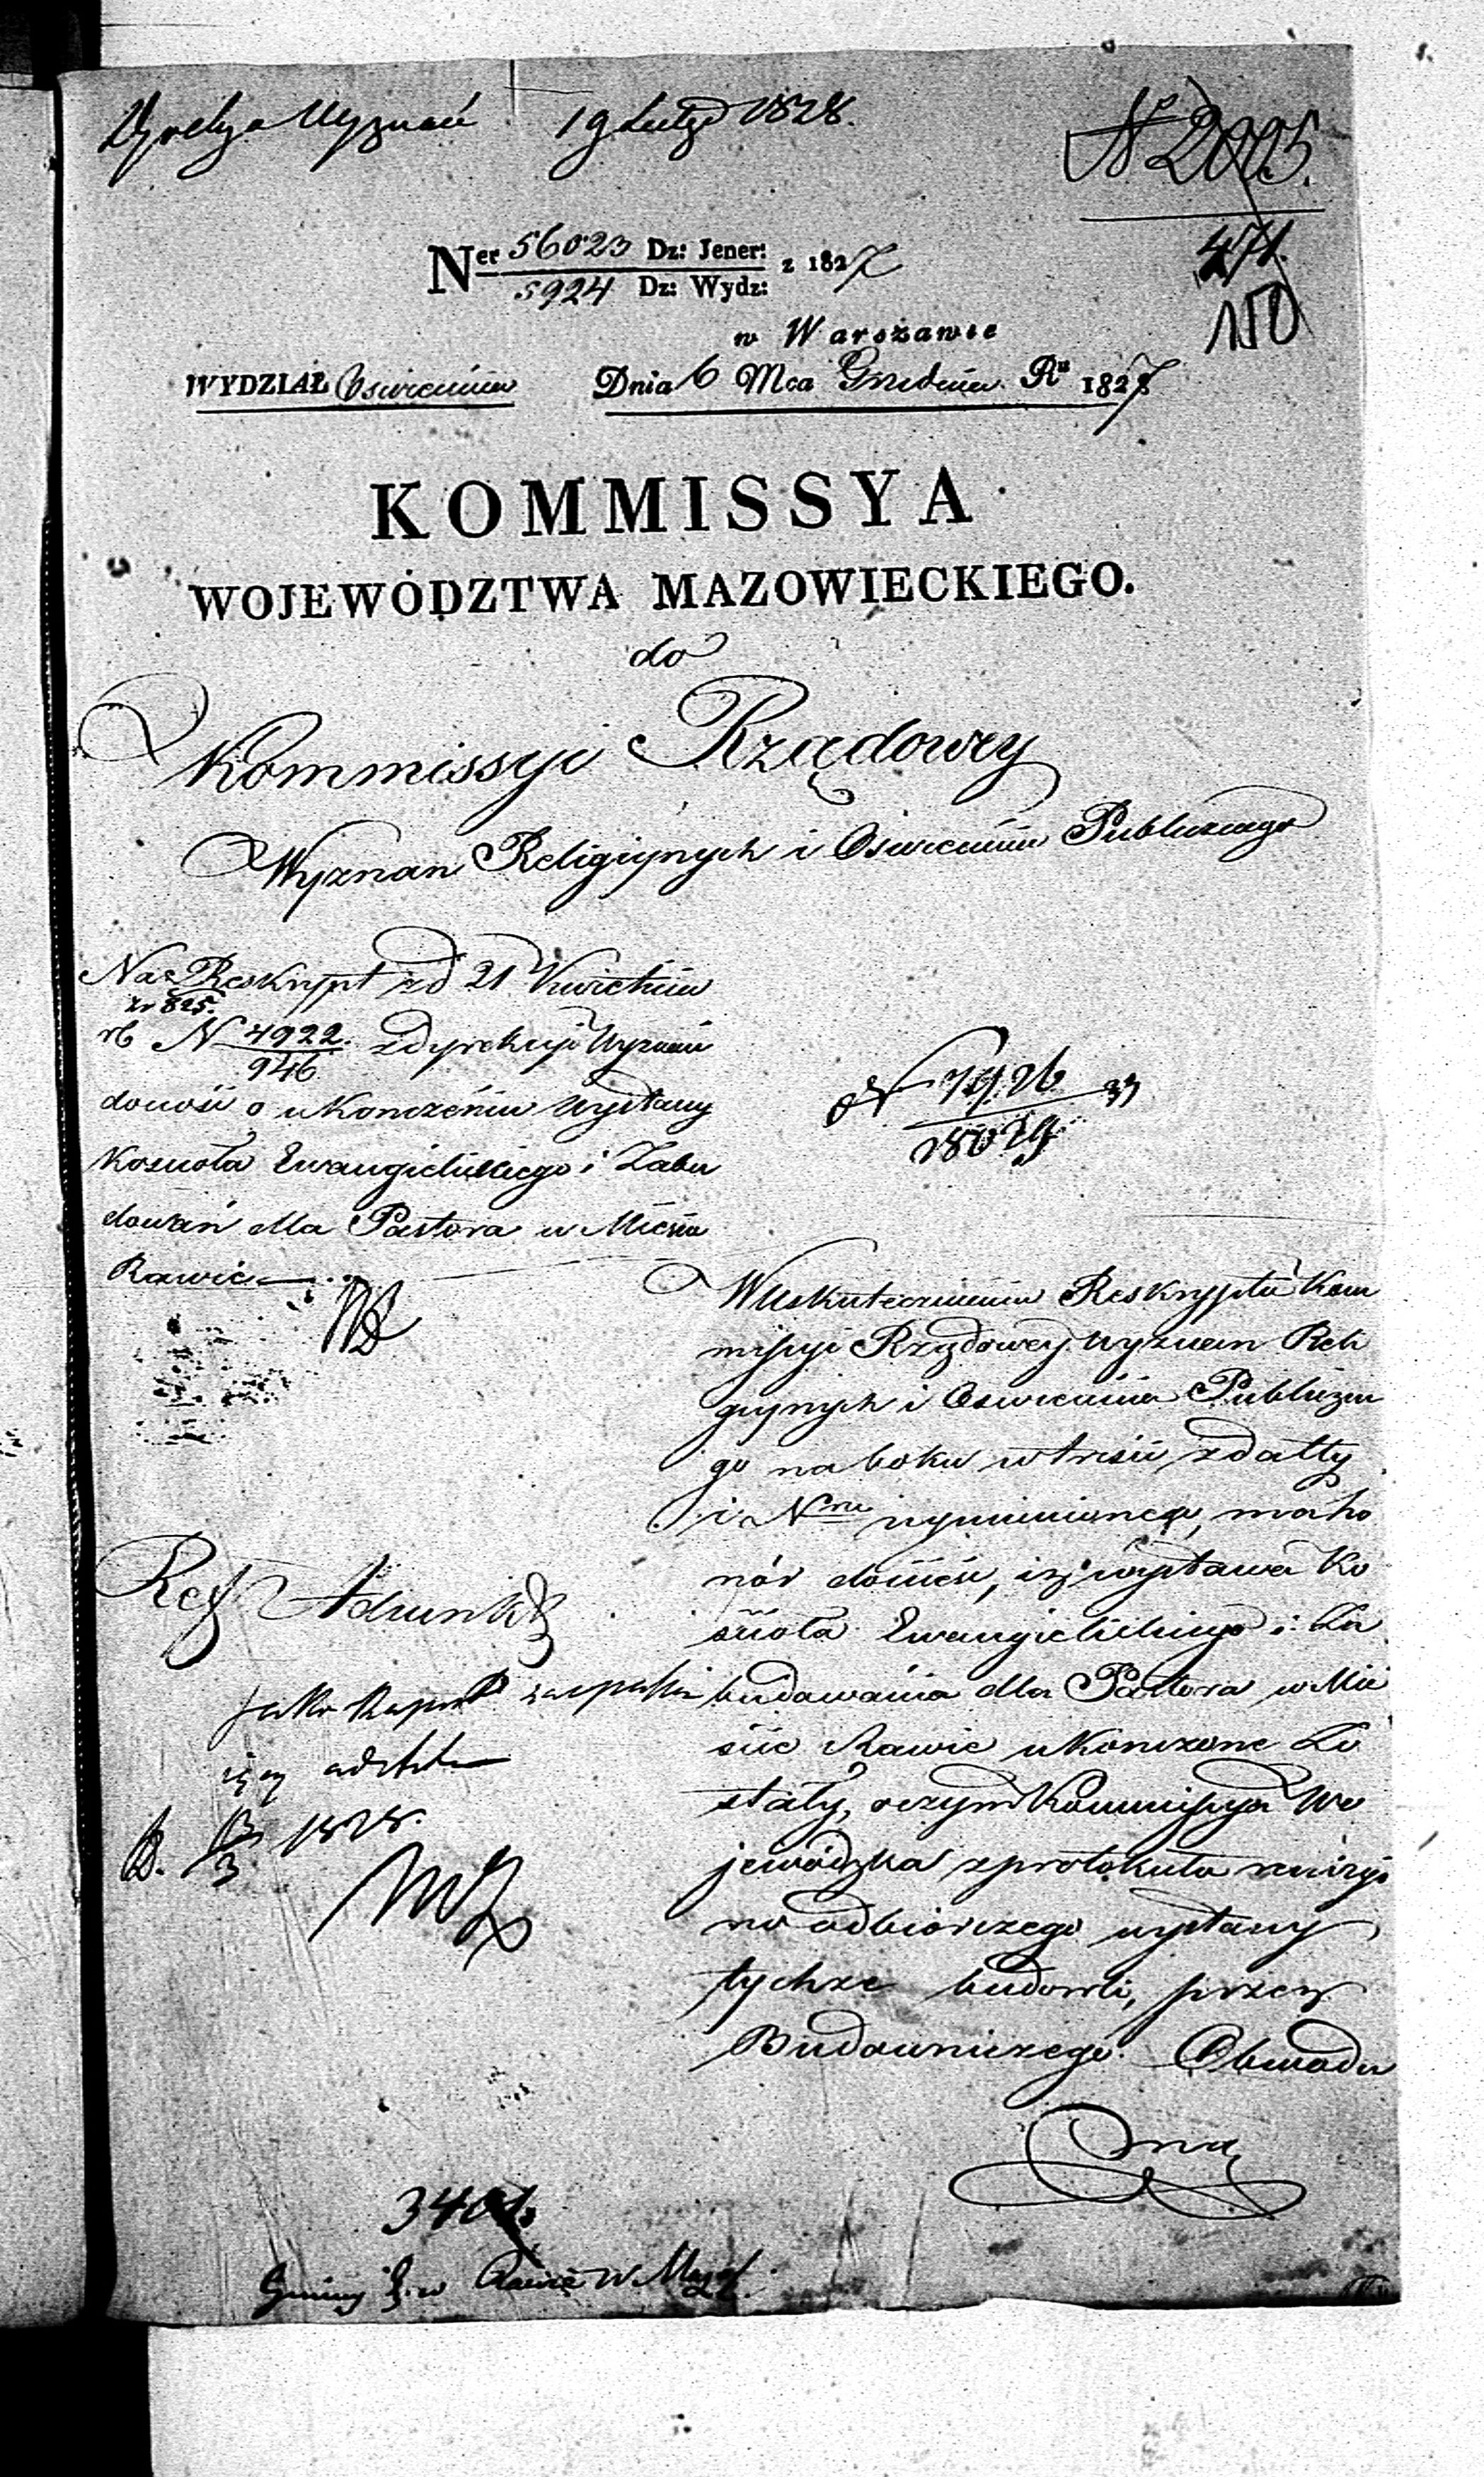 Dyrekcya Wyznań 19 Lutego 1828.
N 2005.
471.
150
Ner 56023 Dz: Jener: z 1827
5924 Dz: Wydz:
w Warszawie
WYDZIAŁ Oswiecenia Dnia 6 Mca Grudnia Ru 1827
KOMMISSYA
WOJEWÓDZTWA MAZOWIECKIEGO.
do
Kommissyi Rządowey
Wyznan Religiynych i Oswiecenia Publicznego
Na Reskrypt zd 21 Kwietnia
zr 825.
rb N 4922. z dyrekcyi Wyznań
946
donosi o ukonczeniu wystawy
Koscioła Ewangielickiego i Zabu
dowań dla Pastora w Miescie
Rawie
N
W uskutecznieniu Reskryptu Kom
missyi Rządowey Wyznan Reli
giynych i Oswiecenia Publiczne
go na boku w tresci, z datty
i Nru wymienionego, ma ho
nór donieść, iż wystawa Ko
ścioła Ewangielickiego i Za
budowania dla Pastora w Mie
scie Rawie ukonczone Zo
stały, o czym Kommissya Wo
jewódzka z protokułu rewizyi
no odbiorczego wystawy
tychże budowli, przez
Budowniczego Obwodu
Ref Adiunkt
Jako Raport
ad acta
B. 3 1828.
3401
Gminy w Rawie W. Maz.